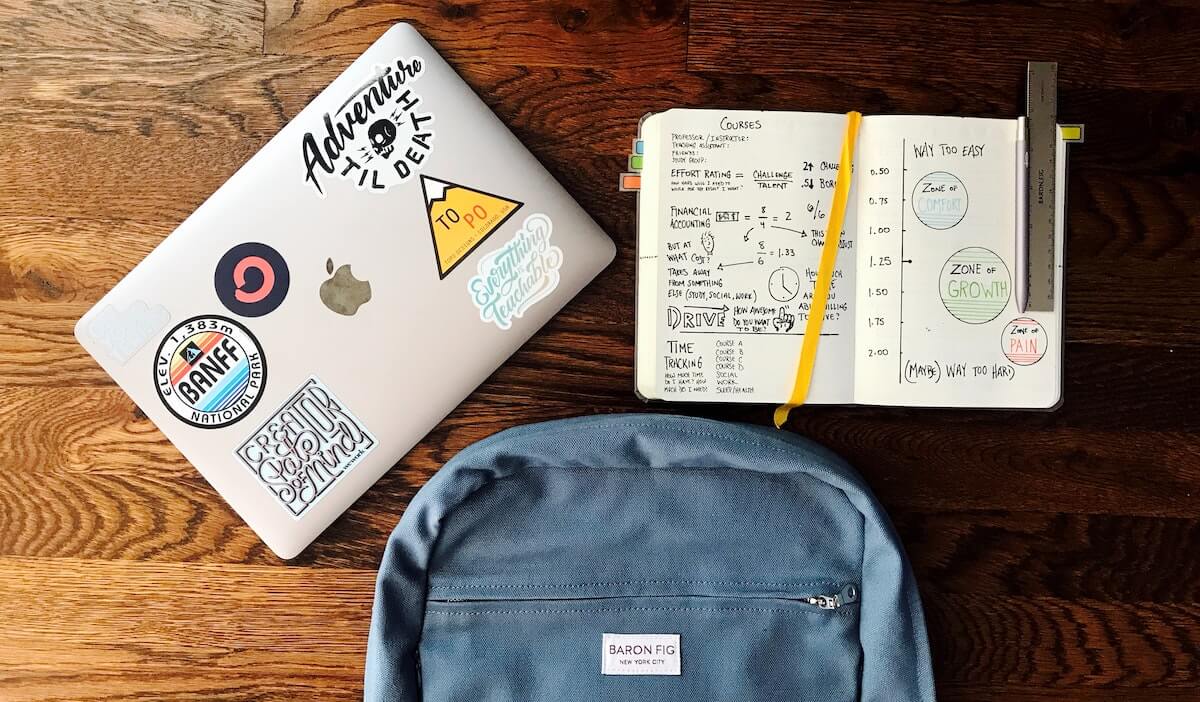 Adventure
TIL DEATH
TO PO
TOPO DESIGNS, COLORADO, USA
Everything
is
Teachable
ELEV. 1,383m
BANFF
NATIONAL PARK
CREATOR
Pals
OF
mind
wework
COURSES
PROFESSOR / INSTRUCTOR:
TEACHING ASSISTANT:
FRIENDS:
STUDY GROUP:
EFFORT RATING = CHALLENGE
TALENT
HOW HARD WILL I NEED TO
WORK FOR THE RESULT I WANT?
2↑
.5↓
FINANCIAL
ACCOUNTING
= 8/4 = 2
6/6
BUT AT
WHAT COST?
8/6 = 1.33
TAKES AWAY
FROM SOMETHING
ELSE (STUDY, SOCIAL, WORK)
HOW MUCH
ARE YOU
DRIVE
HOW AWESOME
DO YOU WANT
TO BE?
TIME
TRACKING
HOW MUCH TIME
DO I HAVE? HOW
MUCH DO I NEED?
COURSE A
COURSE B
COURSE C
COURSE D
SOCIAL
WORK
SLEEP/HEALTH
WAY TOO EASY
0.50
0.75
1.00
1.25
1.50
1.75
2.00
ZONE OF
COMFORT
ZONE OF
GROWTH
ZONE OF
PAIN
(MAYBE) WAY TOO HARD
BARON FIG
BARON FIG
NEW YORK CITY